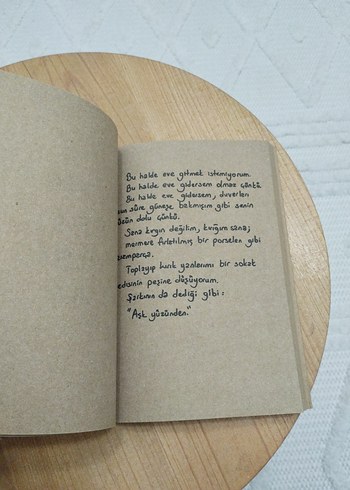 Bu halde eve gitmek istemiyorum.
Bu halde eve gidersem olmaz çünkü.
Bu halde eve gidersem, duvarları
uzun süre güneşe bakmışım gibi senin
yüzün dolu çünkü.
Sana kırgın değilim, kırığım sana;
mermere fırlatılmış bir porselen gibi
paramparça.
Toplayıp kırık yanlarımı bir sokak
kedisinin peşine düşüyorum.
Şarkının da dediği gibi:
"Aşk yüzünden."